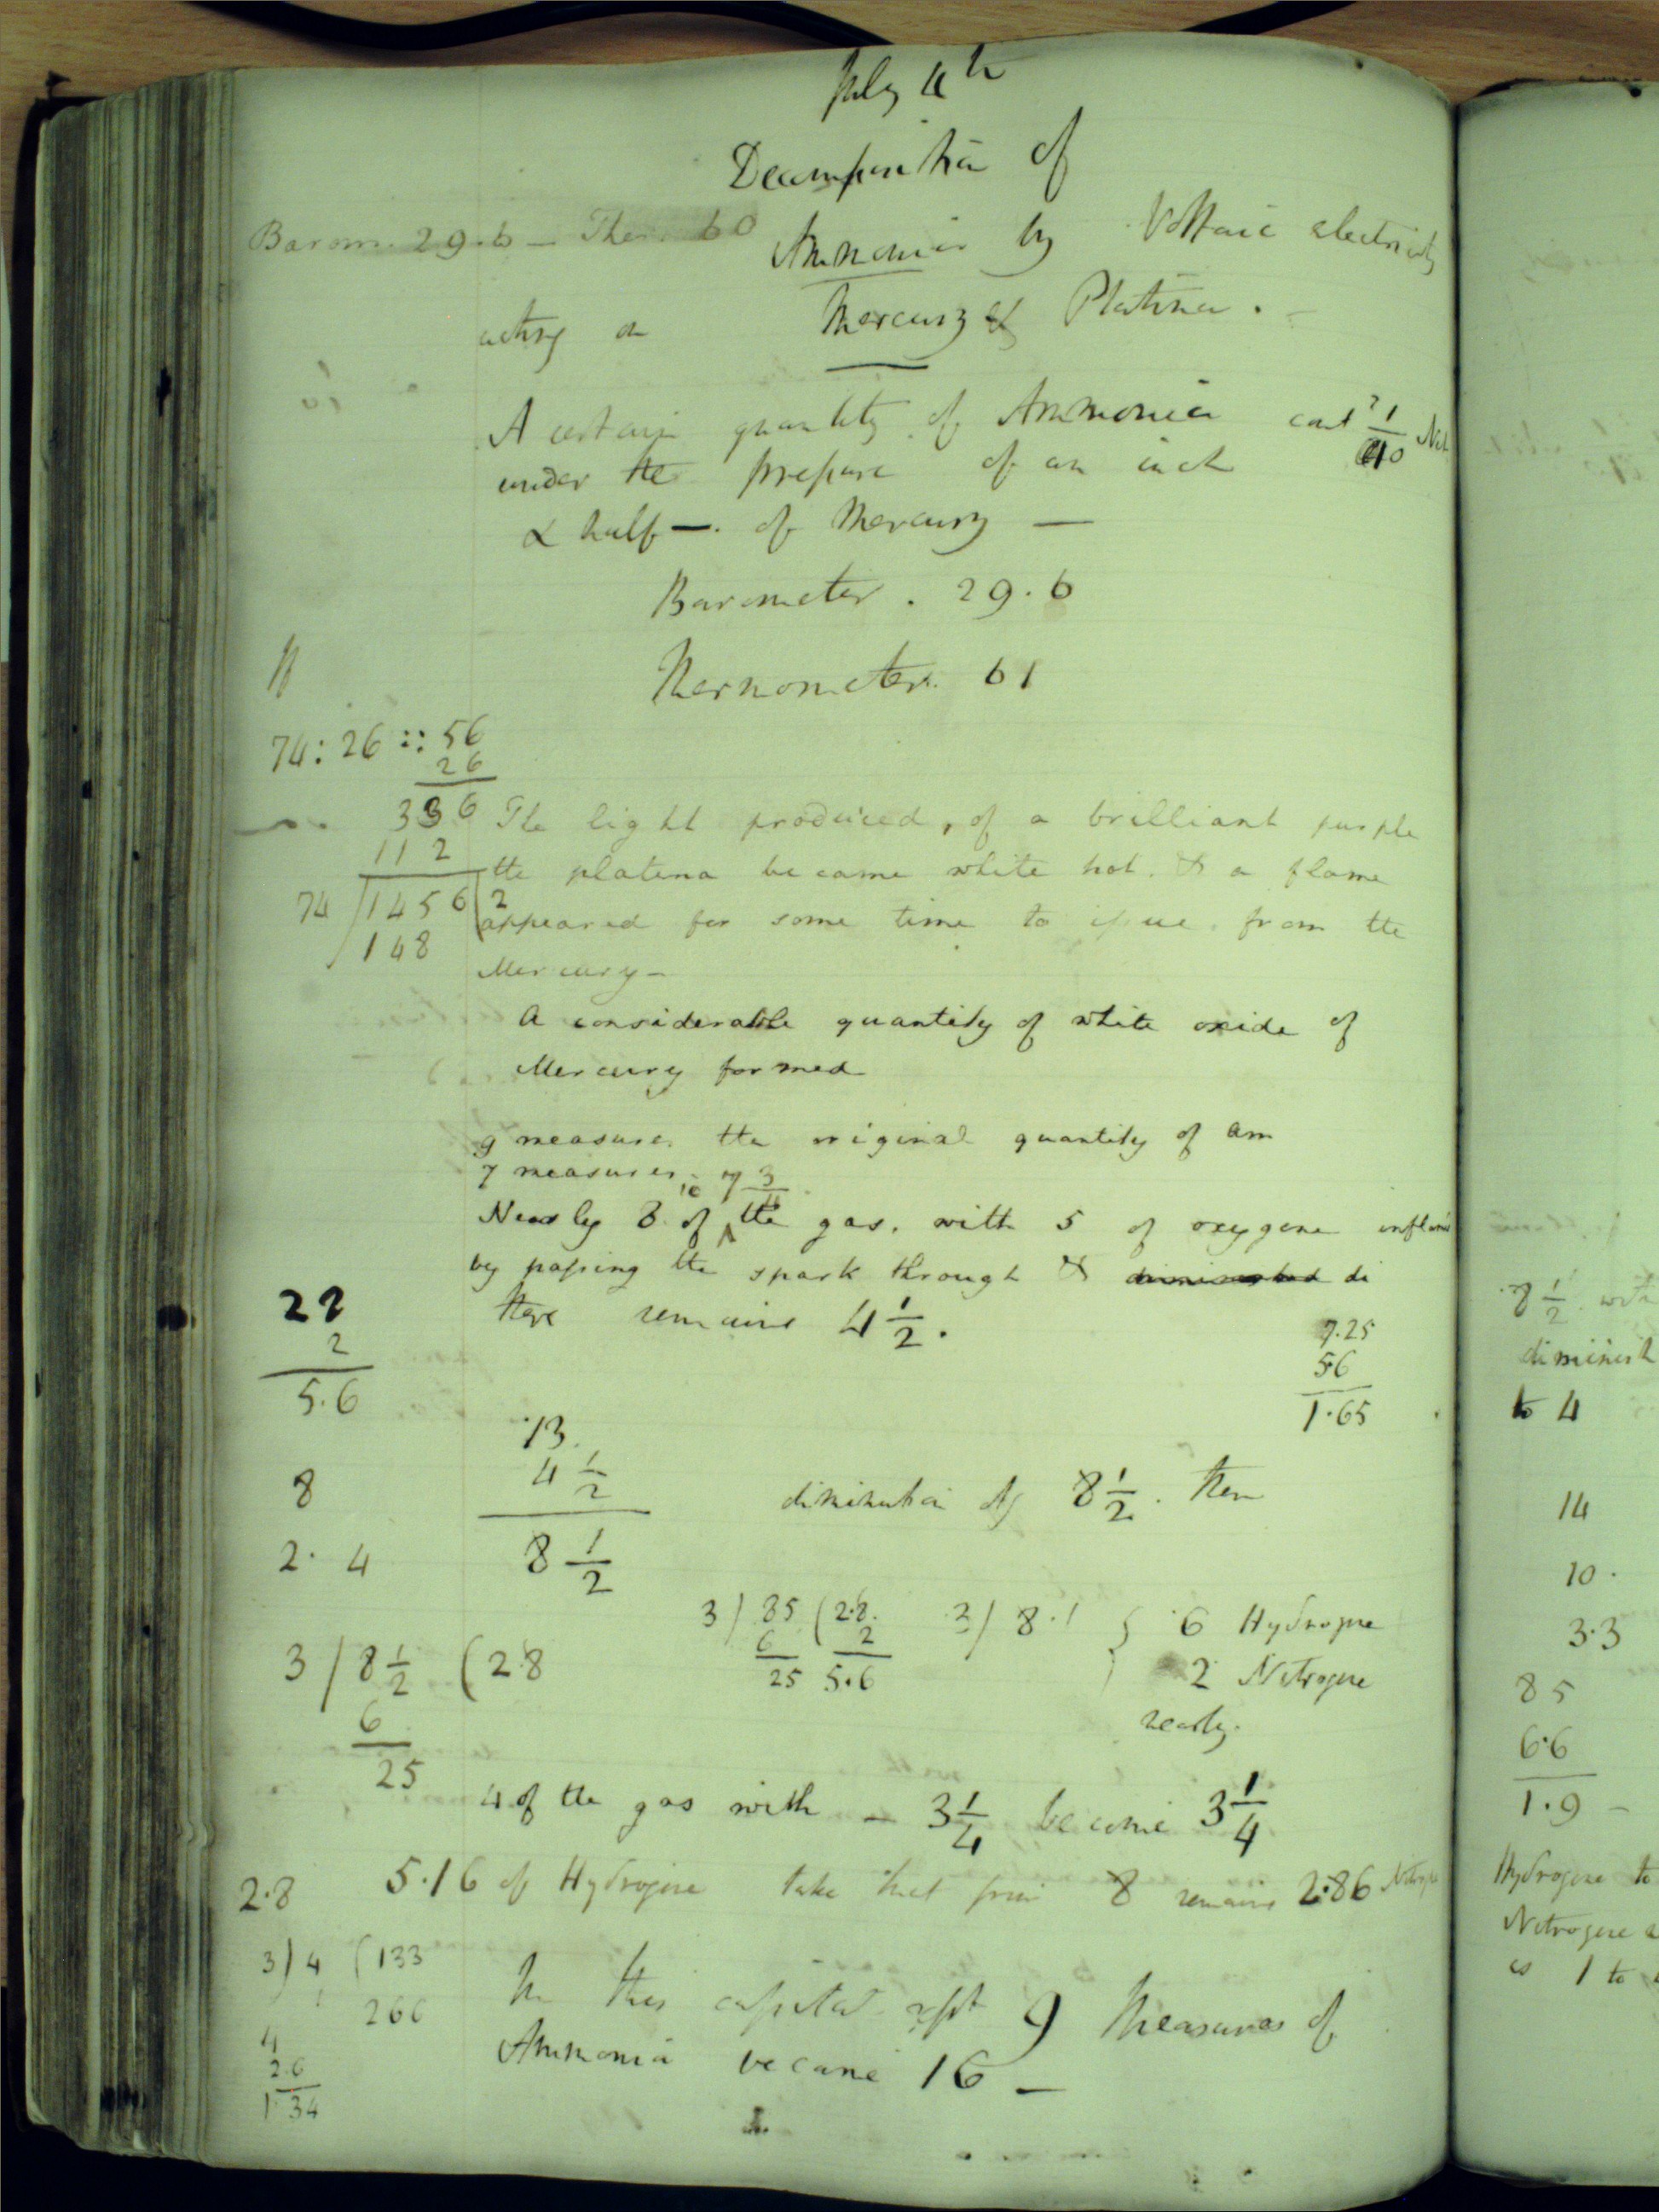 July 4th
Decomposition of
Barom. 29.6 — Ther 60
Ammonia by Voltaic electricity
acting on Mercury & Platina. —
A certain quantity of Ammonia cont 1/40 Nit
under the pressure of an inch
& half —. of Mercury —
Barometer . 29.6
Thermometer. 61
74 : 26 :: 56
26
336
112
74 / 1456 | 2
148
The light produced, of a brilliant purple
the platena became white hot. & a flame
appeared for some time to issue. from the
Mercury —
A considerable quantity of white oxide of
Mercury formed
9 measures the original quantity of am
7 measures
Nearly 8 of the gas. with 5 of oxygene inflam
by passing the spark through & diminished di
there remains 4 1/2.
28
2
5.6
7.25
56
1.65
13.
4 1/2
8 1/2
diminution of 8 1/2. then
8
2. 4
3 / 8 1/2 ( 2.8
6
25
3 ) 85 ( 2.8.
6 2
25 5.6
3 / 8.1
6 Hydrogene
2 Nitrogene
nearly.
4 of the gas with — 3 1/4 become 3 1/4
2.8
5.16 of Hydrogene take that from 8 remains 2.86 Nitrogn
3 ) 4 ( 133
266
4
2.6
1 34
In this capital expt 9 Measures of
Ammonia became 16 —
8 1/2 with
diminish
to 4
14
10.
3.3
85
6.6
1.9 —
Hydrogene to
Nitrogene a
is 1 to